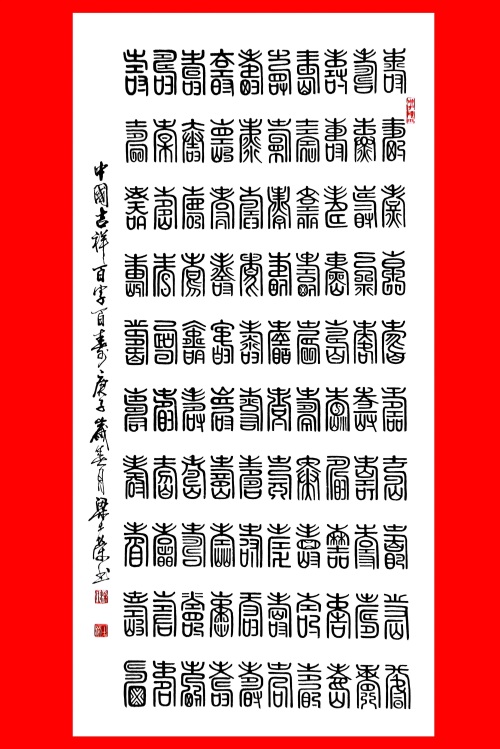 壽壽壽壽壽壽壽壽壽壽
壽壽壽壽壽壽壽壽壽壽
壽壽壽壽壽壽壽壽壽壽
壽壽壽壽壽壽壽壽壽壽
壽壽壽壽壽壽壽壽壽壽
壽壽壽壽壽壽壽壽壽壽
壽壽壽壽壽壽壽壽壽壽
壽壽壽壽壽壽壽壽壽壽
壽壽壽壽壽壽壽壽壽壽
壽壽壽壽壽壽壽壽壽壽
中國吉祥百字百寿庚子歲月梁荣书